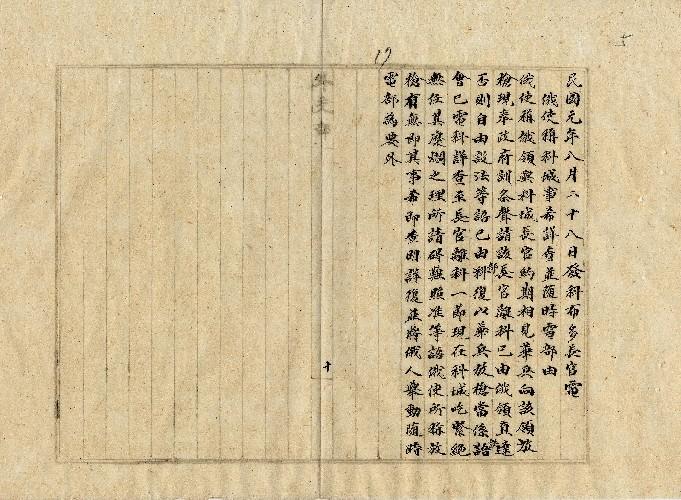 5
17
民國元年八月二十八日發科布多長官電
俄使稱科城事希詳查並隨時電部由
俄使稱俄領與科城長官約期相見華兵向該領放
槍現奉政府訓条聲請該長官離科已由俄領直達
否則自由設法等語已由部復以華兵放槍當係誤
會已電科詳查至長官離科一節現在科城吃緊絕
無任其糜爛之理所請碍難照准等語俄使所稱放
槍有無即其事希即查明詳復並將俄人舉動隨時
電部為要外
外交部
十